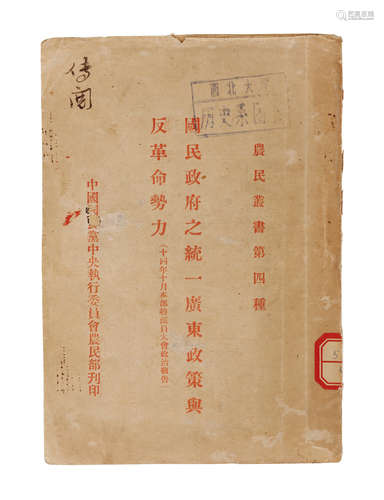 農民叢書第四種
國民政府之統一廣東政策與
反革命勢力(十四年十月本部特派員大會政治報告)
中國國民黨中央執行委員會農民部刊印
傳閱
西北大
历史系